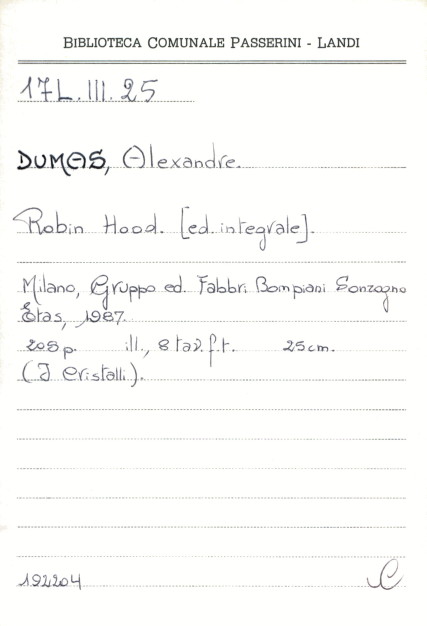 BIBLIOTECA COMUNALE PASSERINI - LANDI
17L.III.25
DUMAS, Alexandre.
Robin Hood. [ed. integrale].
Milano, Gruppo ed. Fabbri Bompiani Sonzogno
Etas, 1987.
205 p. ill., 8 tav. f.t. 25 cm.
(I Cristalli).
192204 C